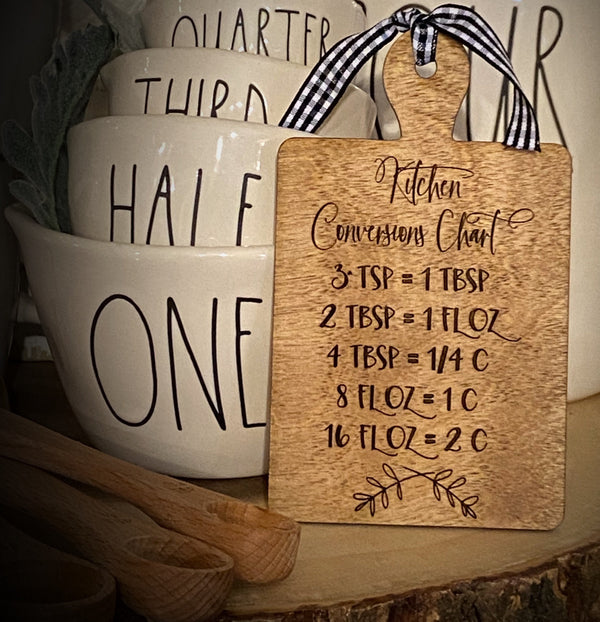 QUARTER
THIRD
HALF
ONE
Kitchen
Conversions Chart
3 TSP = 1 TBSP
2 TBSP = 1 FLOZ
4 TBSP = 1/4 C
8 FLOZ = 1 C
16 FLOZ = 2 C